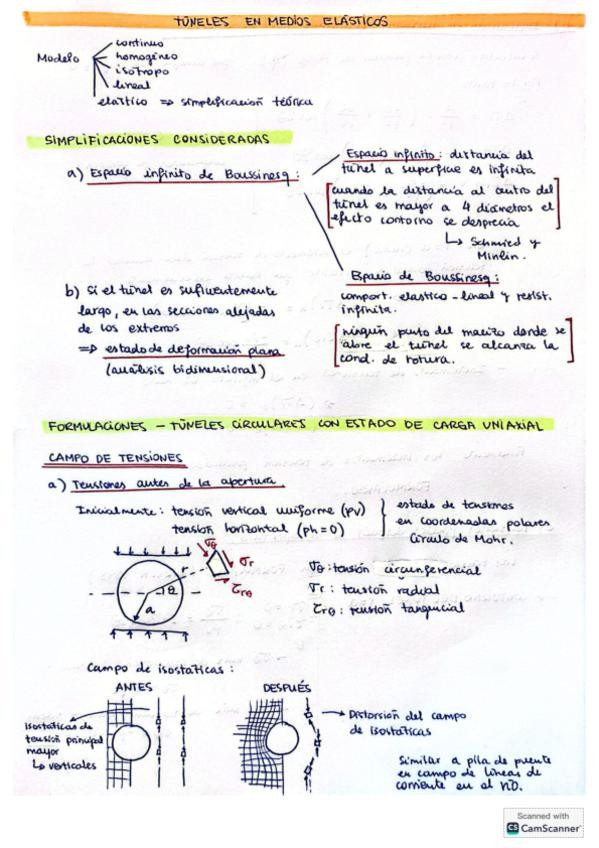 TÚNELES EN MEDIOS ELÁSTICOS
Modelo
continuo
homogéneo
isótropo
lineal
elástico => simplificación teórica
SIMPLIFICACIONES CONSIDERADAS
a) Espacio infinito de Boussinesq:
Espacio infinito: distancia del
túnel a superficie es infinita
[cuando la distancia al centro del
túnel es mayor a 4 diámetros el
efecto contorno se desprecia]
↳ Schmied y
Minlin.
Espacio de Boussinesq:
comport. elástico-lineal y resist.
infinita.
[ningún punto del macizo donde se
abre el túnel se alcanza la
cond. de rotura.]
b) Si el túnel es suficientemente
largo, en las secciones alejadas
de los extremos
=> estado de deformación plana
(análisis bidimensional)
FORMULACIONES - TÚNELES CIRCULARES CON ESTADO DE CARGA UNIAXIAL
CAMPO DE TENSIONES
a) Tensiones antes de la apertura
Inicialmente: tensión vertical uniforme (pv)
tensión horizontal (ph=0)
estado de tensiones
en coordenadas polares
Círculo de Mohr.
σθ
σr
τrθ
r
θ
a
σθ: tensión circunferencial
σr: tensión radial
τrθ: tensión tangencial
Campo de isostáticas:
ANTES
DESPUÉS
Isostáticas de
tensión principal
mayor
↳ verticales
Distorsión del campo
de isostáticas
Similar a pila de puente
en campo de líneas de
corriente en el río.
Scanned with
CS CamScanner